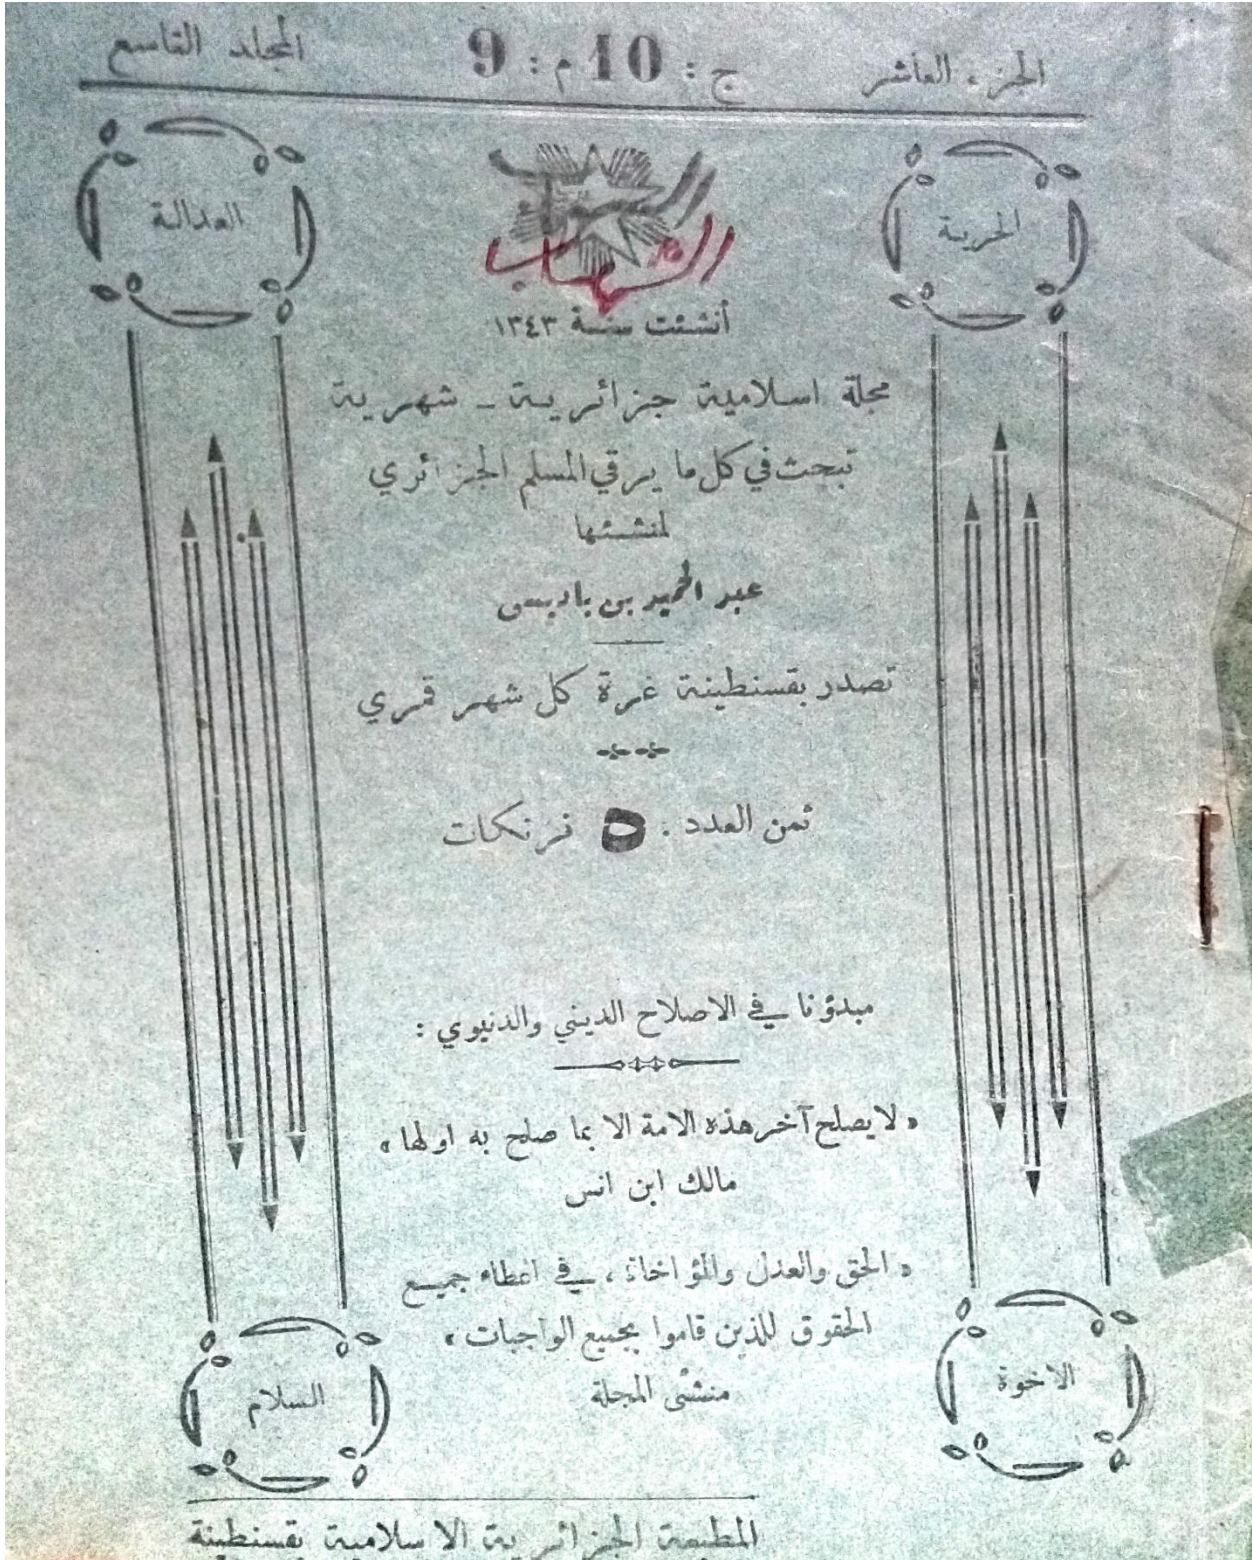 الجزء العاشر ج : 10 م : 9 المجلد التاسع
الحرية
العدالة
الشهاب
الشهاب
أنشئت سنة ١٣٤٣
مجلة اسلامية جزائرية ـ شهرية
تبحث في كل ما يرقي المسلم الجزائري
لمنشئها
عبد الحميد بن باديس
تصدر بقسنطينة غرة كل شهر قمري
ثمن العدد . ٥ فرنكات
مبدؤنا في الاصلاح الديني والدنيوي :
« لا يصلح آخر هذه الامة الا بما صلح به اولها »
مالك ابن انس
« الحق والعدل والمؤاخاة ، في اعطاء جميع
الحقوق للذين قاموا بجميع الواجبات »
منشئى المجلة
الاخوة
السلام
المطبعة الجزائرية الاسلامية بقسنطينة